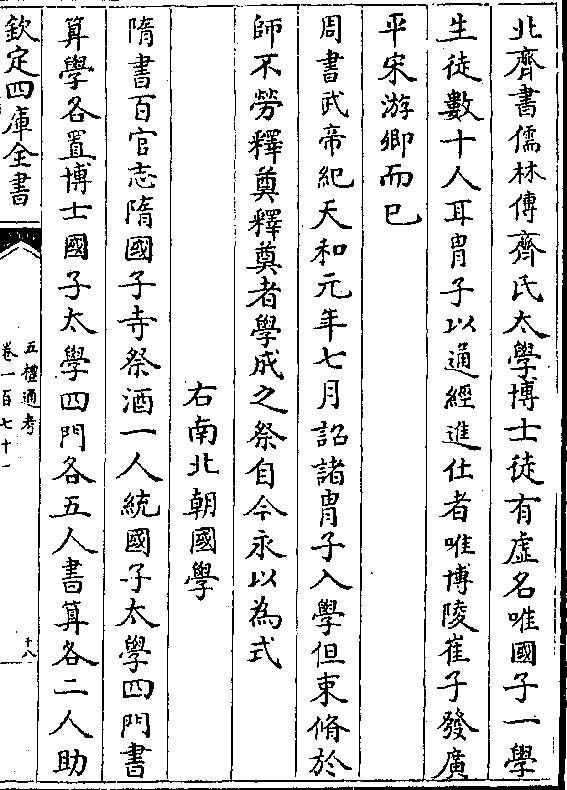 北齊書儒林傳齊氏太學博士徒有虚名唯國子一學
生徒數十人耳胄子以通經進仕者唯博陵崔子發廣
平宋游卿而已
周書武帝紀天和元年七月詔諸胄子入學但束脩於
師不勞釋奠釋奠者學成之祭自今永以為式
右南北朝國學
隋書百官志隋國子寺祭酒一人統國子太學四門書
算學各置博士國子太學四門各五人書算各二人助
欽定四庫全書
五禮通考
卷一百七十一
十八